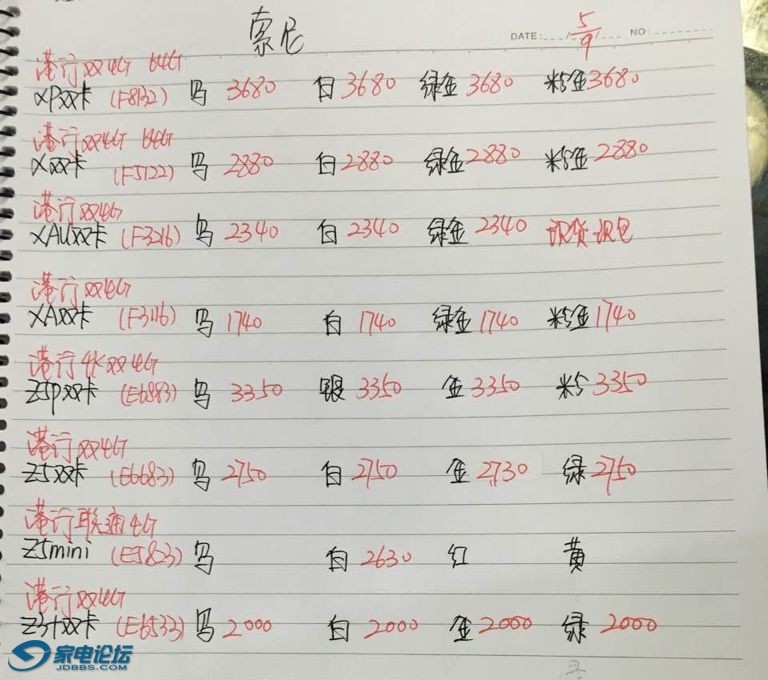 索尼
DATE: 5/9 NO:
港行双4G 64G
XP双卡 (F8132) 乌 3680 白 3680 绿金 3680 粉金 3680
港行双4G 64G
X双卡 (F5122) 乌 2880 白 2880 绿金 2880 粉金 2880
港行双4G
XAU双卡 (F3216) 乌 2340 白 2340 绿金 2340 现货现包
港行双4G
XA双卡 (F3116) 乌 1740 白 1740 绿金 1740 粉金 1740
港行4K双4G
Z5P双卡 (E6883) 乌 3350 银 3350 金 3350 粉 3350
港行双4G
Z5双卡 (E6683) 乌 2750 白 2750 金 2730 绿 2750
港行联通4G
Z5mini (E5823) 乌 白 2630 红 黄
港行双4G
Z3+双卡 (E6533) 乌 2000 白 2000 金 2000 绿 2000
家电论坛
JDBBS.COM